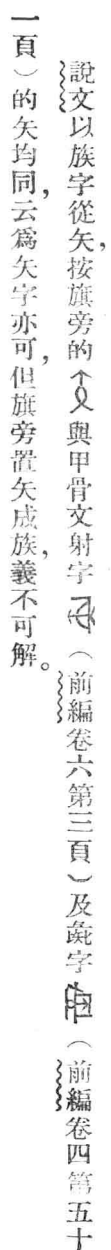 說文以族字從矢，按旗旁的與甲骨文射字（前編卷六第三頁）及彘字（前編卷四第五十
一頁）的矢均同，云爲矢字亦可，但旗旁置矢成族，義不可解。